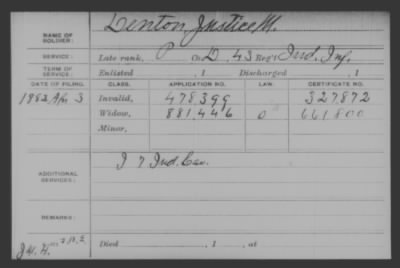 NAME OF SOLDIER: Denton, Justice M.
SERVICE: Late rank, P Co. D, 43 Reg't Ind. Inf.
TERM OF SERVICE: Enlisted , 1 Discharged , 1
DATE OF FILING. CLASS. APPLICATION NO. LAW. CERTIFICATE NO.
3 Invalid, 478399 327872
Widow, 881,446 661800
Minor,
ADDITIONAL SERVICES: I 7 Ind. Cav.
REMARKS:
Died , 1 , at